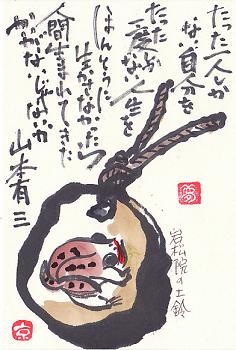 たった一人しか
ない自分を
たった一度しかない人生を
ほんとうに
生かさなかったら
人間生まれてきた
かいがないじゃないか
山本有三
岩松院の土鈴
京